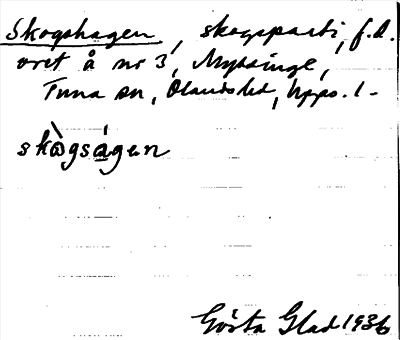 Skogshagen, skogsparti, f.d.
vret å nr 3, Myssinge,
Tuna sn, Olands hd, Upps. l.
skògságen
Gösta Glad 1936